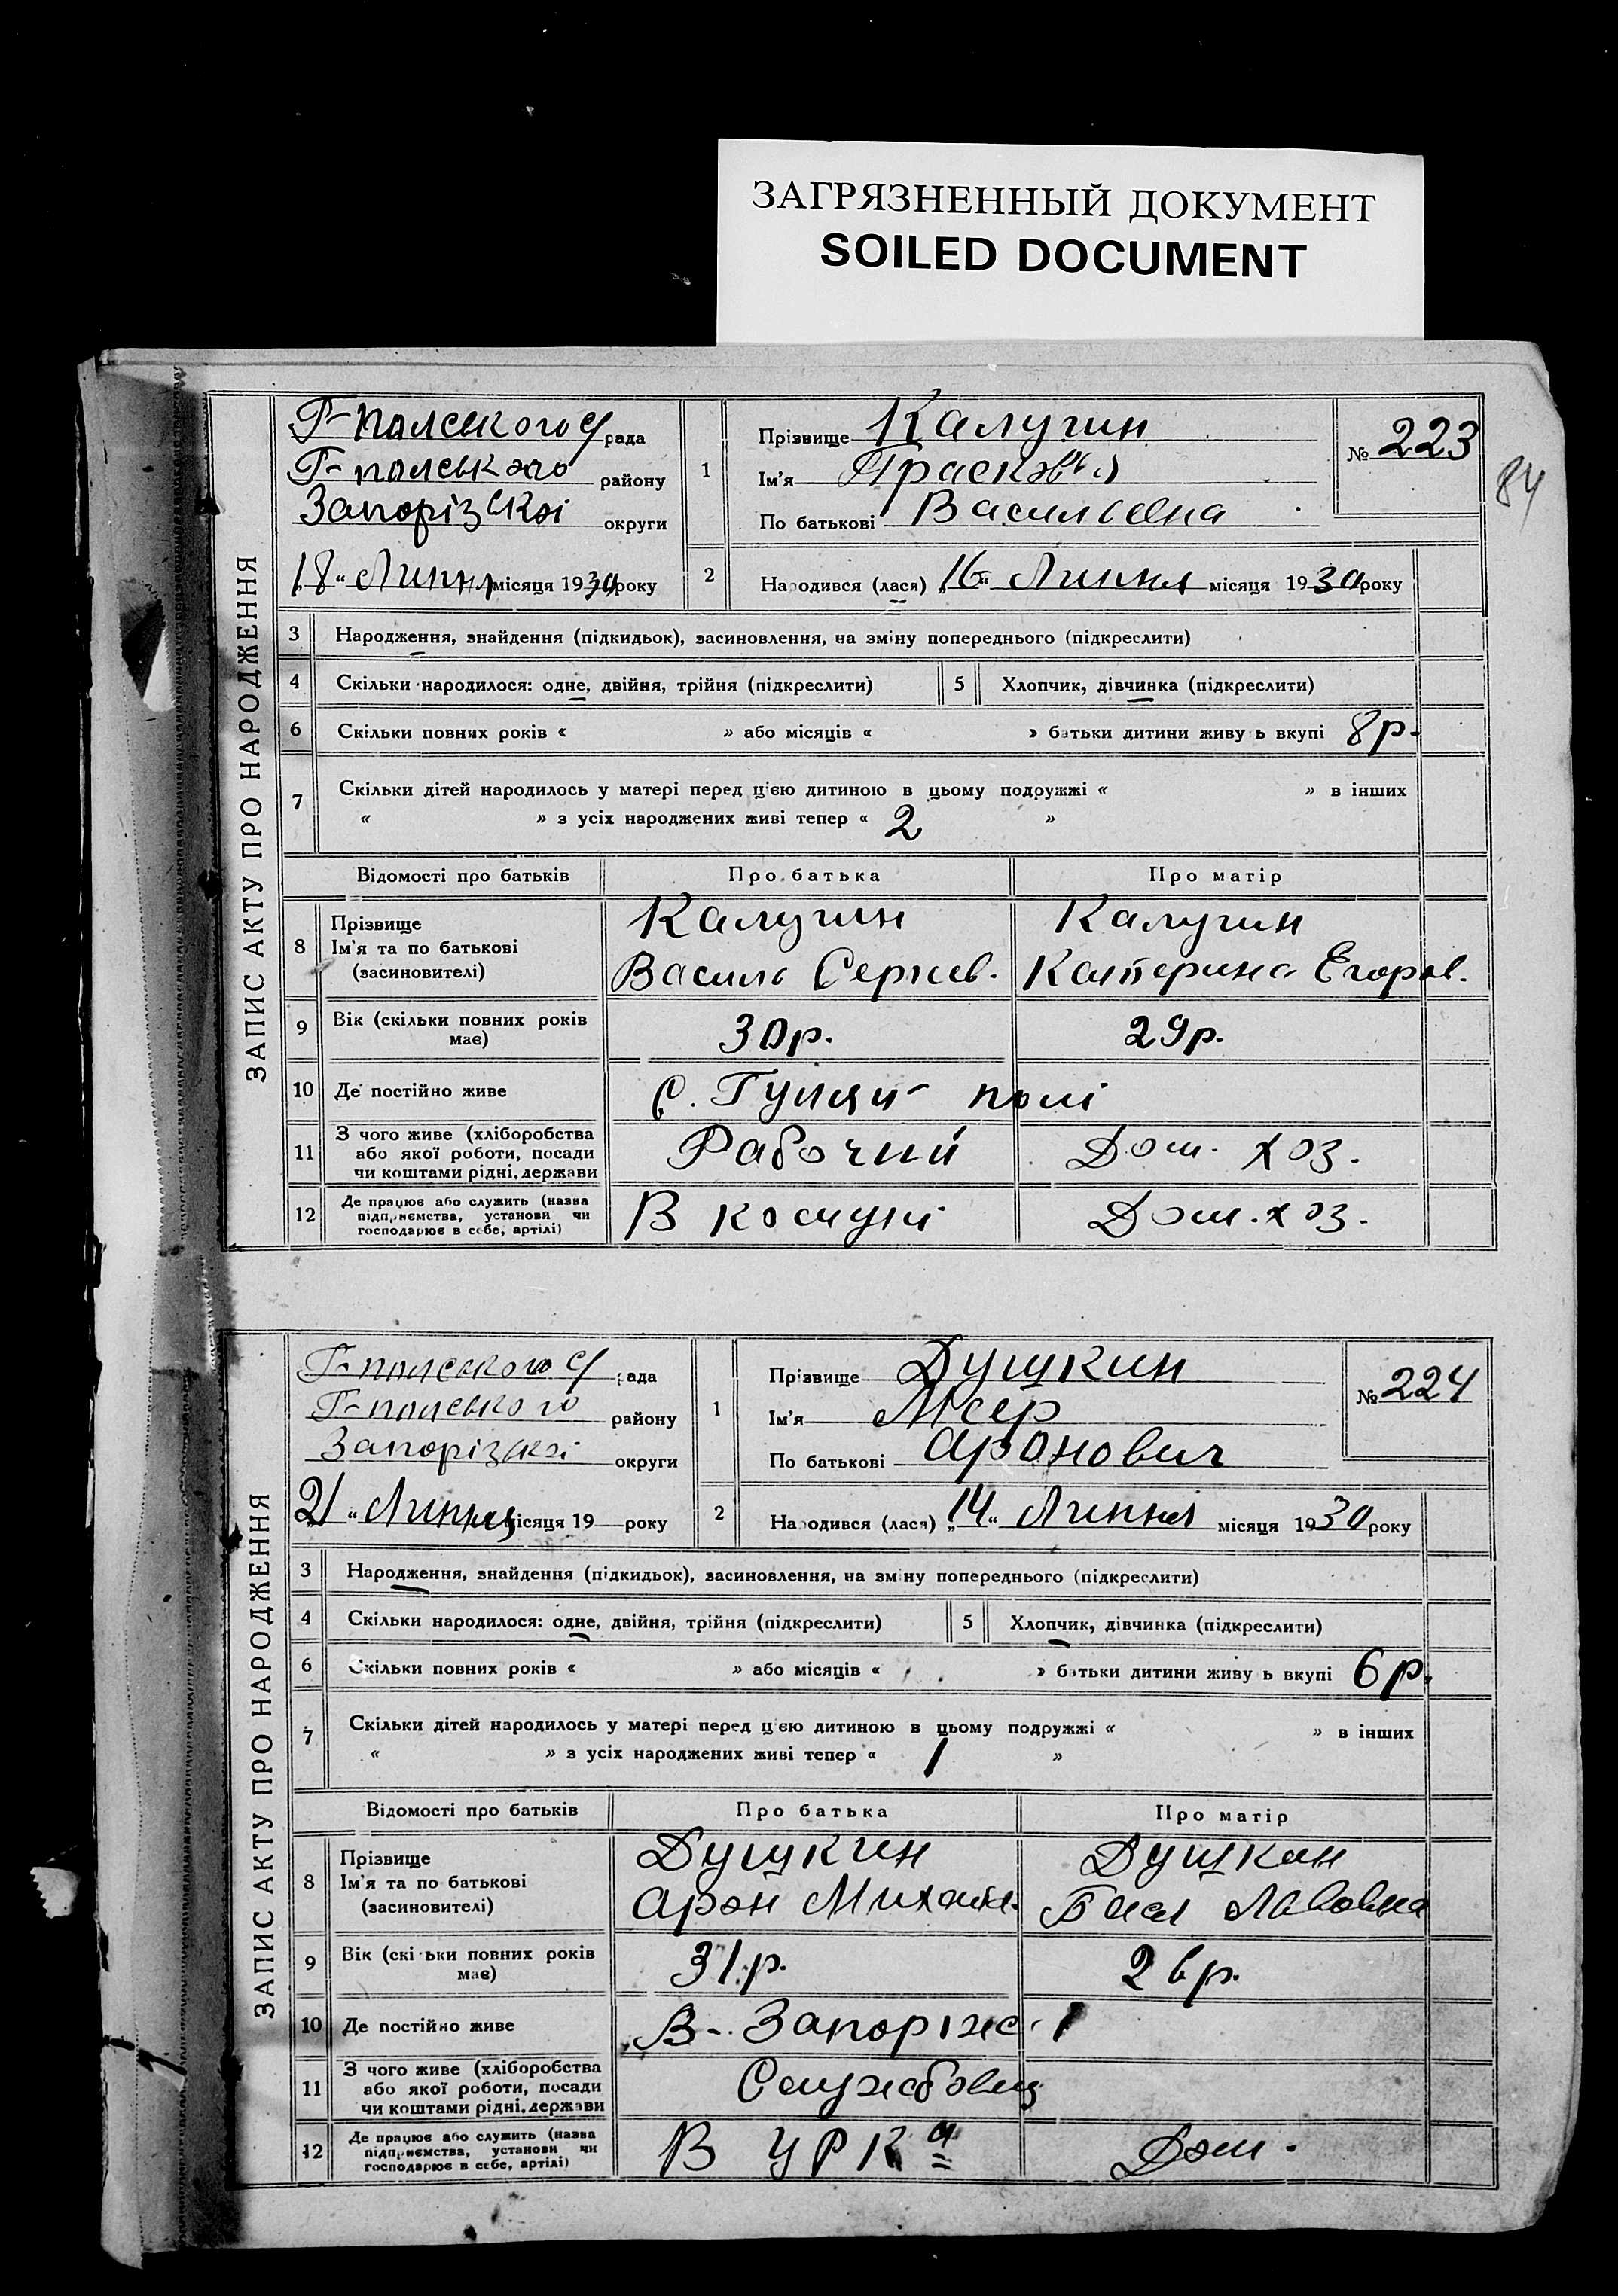 ЗАГРЯЗНЕННЫЙ ДОКУМЕНТ
SOILED DOCUMENT
84
ЗАПИС АКТУ ПРО НАРОДЖЕННЯ
Г-полського С/рада
Г-польського району
Запорізскої округи
"18" Липня місяця 1930 року
1 Прізвище Калугин
Ім'я Прасковья
По батькові Васильевна
№ 223
2 Народився (лася) "16" Липня місяця 1930 року
3 Народження, знайдення (підкидьок), засиновлення, на зміну попереднього (підкреслити)
4 Скільки народилося: одне, двійня, трійня (підкреслити) 5 Хлопчик, дівчинка (підкреслити)
6 Скільки повних років « » або місяців « » батьки дитини живуть вкупі 8 р.
7 Скільки дітей народилось у матері перед цією дитиною в цьому подружжі « » в інших
« » з усіх народжених живі тепер « 2 »
Відомості про батьків Про батька Про матір
8 Прізвище
Ім'я та по батькові
(засиновителі)
Калугин Калугин
Василь Сергеев. Катерина Егоров.
9 Вік (скільки повних років має) 30 р. 29 р.
10 Де постійно живе С. Гуляй-полі
11 З чого живе (хліборобства
або якої роботи, посади
чи коштами рідні, держави
Рабочий Дом. хоз.
12 Де працює або служить (назва
підприємства, установи чи
господарює в себе, артілі)
В комуні Дом. хоз.
ЗАПИС АКТУ ПРО НАРОДЖЕННЯ
Г-полського С/рада
Г-польського району
Запорізької округи
"21" Липня місяця 19 року
1 Прізвище Душкин
Ім'я Меер
По батькові Аронович
№ 224
2 Народився (лася) "14" Липня місяця 1930 року
3 Народження, знайдення (підкидьок), засиновлення, на зміну попереднього (підкреслити)
4 Скільки народилося: одне, двійня, трійня (підкреслити) 5 Хлопчик, дівчинка (підкреслити)
6 Скільки повних років « » або місяців « » батьки дитини живуть вкупі 6 р.
7 Скільки дітей народилось у матері перед цією дитиною в цьому подружжі « » в інших
« » з усіх народжених живі тепер « 1 »
Відомості про батьків Про батька Про матір
8 Прізвище
Ім'я та по батькові
(засиновителі)
Душкин Душкин
Арон Михайл.
9 Вік (скільки повних років має) 31 р. 26 р.
10 Де постійно живе В-Запоріж.
11 З чого живе (хліборобства
або якої роботи, посади
чи коштами рідні, держави
Службовец
12 Де працює або служить (назва
підприємства, установи чи
господарює в себе, артілі)
В УРКа Дом.